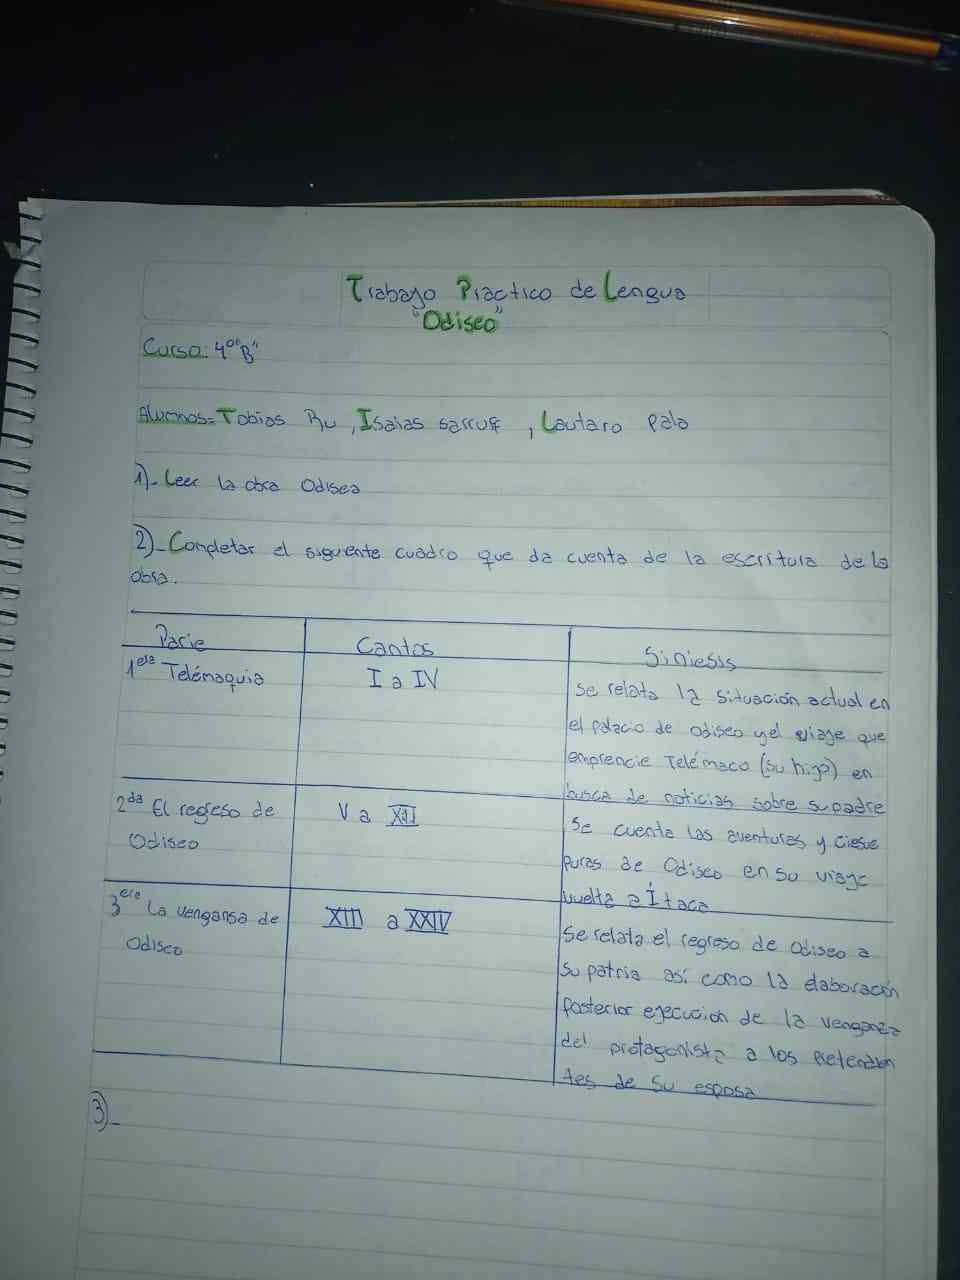 Trabajo Práctico de Lengua
"Odiseo"
Curso: 4º"B"
Alumnos= Tobias Ru, Isaias sarruf, Lautaro Palo
1)- Leer la obra Odisea
2)- Completar el siguiente cuadro que da cuenta de la escritura de la
obra.
Parte Cantos Sintesis
1era Telémaquia I a IV
se relata la situación actual en
el palacio de odiseo y el viaje que
emprencie Telémaco (su higo) en
busca de noticias sobre su padre
2da El regreso de V a XII
Odiseo
se cuenta las aventuras y ciesve
puras de Odiseo en su viage
vuelta a Ítaca
3era La vengansa de XIII a XXIV
Odiseo
se relata el regreso de odiseo a
su patria así como la elaboración
posterior ejecucion de la venganza
del protagonista a los pretendien
tes de su esposa
3)-